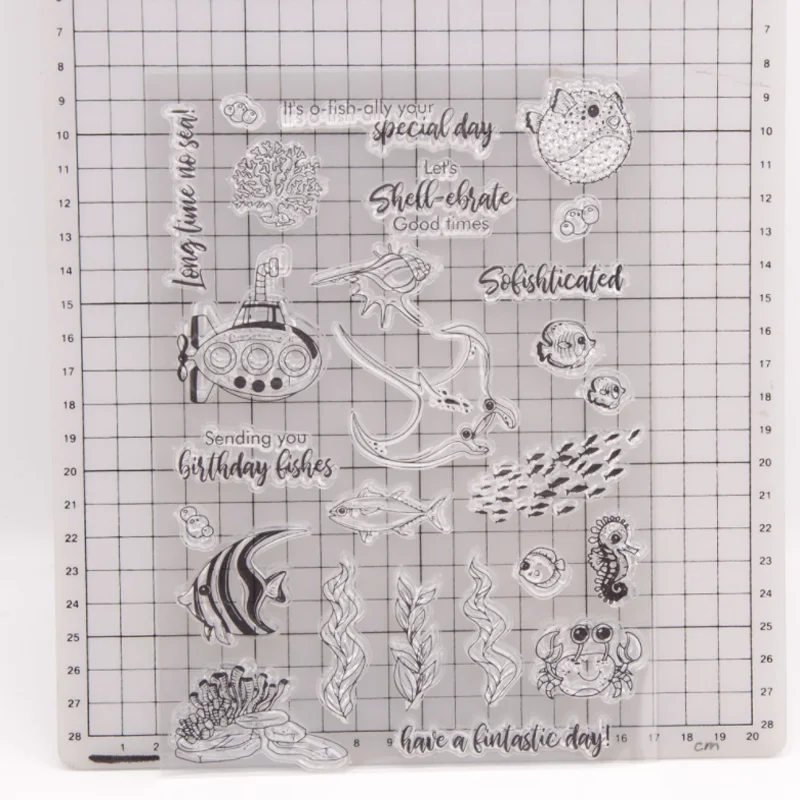 7
8
9
10
11
12
13
14
15
16
17
18
19
20
21
22
23
24
25
26
27
28
7
8
9
10
11
12
13
14
15
16
17
18
19
20
21
22
23
24
25
26
27
28
Long time no sea!
It's o-fish-ally your
special day
Let's
Shell-ebrate
Good times
Sofishticated
Sending you
birthday fishes
have a fintastic day!
1 2 8 9 16 17 18 19 20
cm